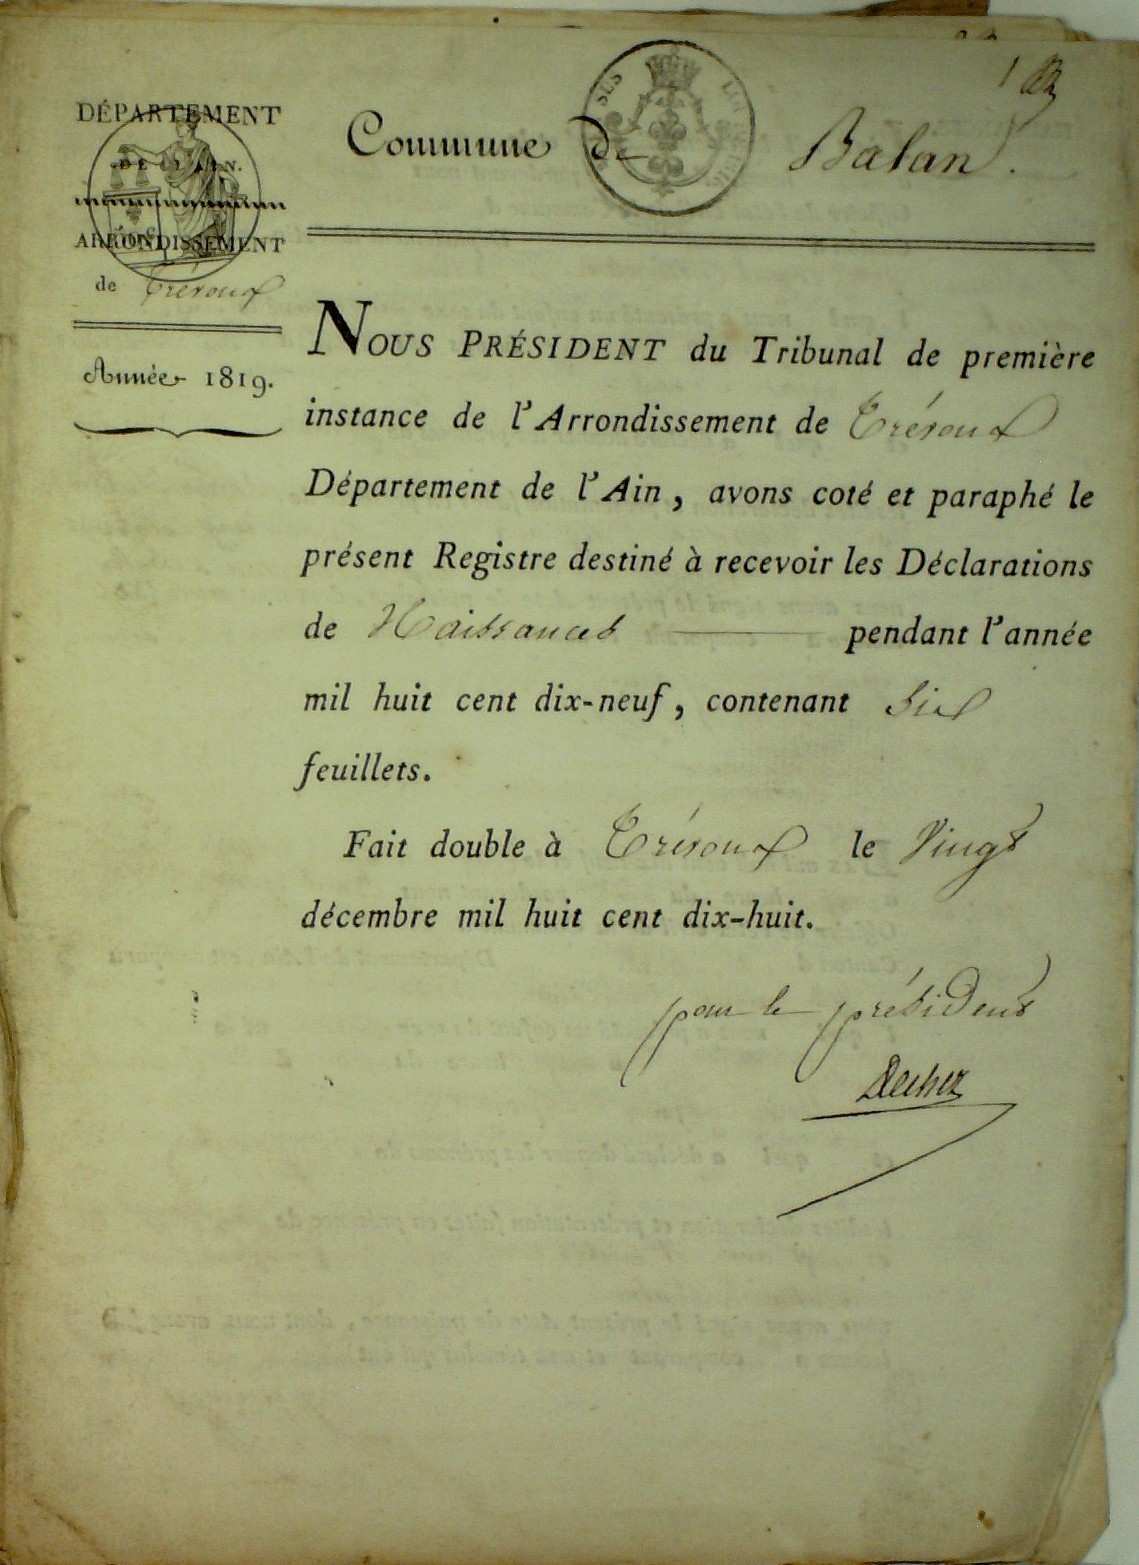 DÉPARTEMENT
DE L'AIN.
ARRONDISSEMENT
de Trévoux
Année 1819.
Commune de Balan.
1
NOUS PRÉSIDENT du Tribunal de première
instance de l'Arrondissement de Trévoux
Département de l'Ain, avons coté et paraphé le
présent Registre destiné à recevoir les Déclarations
de Naissances pendant l'année
mil huit cent dix-neuf, contenant Six
feuillets.
Fait double à Trévoux le Vingt
décembre mil huit cent dix-huit.
pour le président